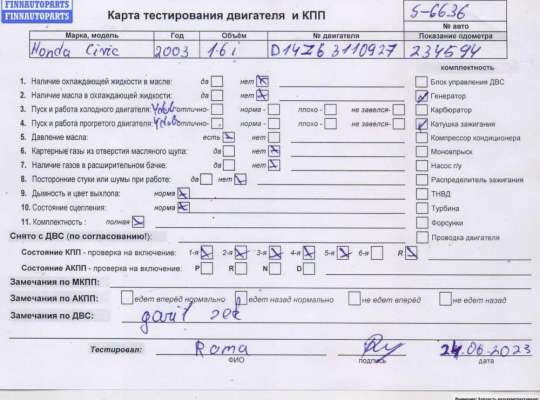 FINNAUTOPARTS
FINNAUTOPARTS
Карта тестирования двигателя и КПП
S-6636
№ авто
Марка, модель
Год
Объём
№ двигателя
Показание одометра
Honda Civic
2003
1.6 i
D14Z6 3110927
234594
комплектность
1. Наличие охлаждающей жидкости в масле: да нет
Блок управления ДВС
2. Наличие масла в охлаждающей жидкости: да нет
Генератор
3. Пуск и работа холодного двигателя: отлично- норма - плохо - не завелся-
Карбюратор
4. Пуск и работа прогретого двигателя: отлично- норма - плохо - не завелся-
Катушка зажигания
5. Давление масла: есть нет
Компрессор кондиционера
6. Картерные газы из отверстия масляного щупа: да нет
Моновпрыск
7. Наличие газов в расширительном бачке: да нет
Насос г/у
8. Посторонние стуки или шумы при работе: да нет
Распределитель зажигания
9. Дымность и цвет выхлопа: норма
ТНВД
10. Состояние сцепления: норма
Турбина
11. Комплектность : полная
Форсунки
Снято с ДВС (по согласованию!):
Проводка двигателя
Состояние КПП - проверка на включение: 1-я 2-я 3-я 4-я 5-я 6-я R
Состояние АКПП - проверка на включение: P R N D
Замечания по МКПП:
Замечания по АКПП: едет вперёд нормально едет назад нормально не едет вперёд не едет назад
Замечания по ДВС:
Тестировал: Roma
24.06.2023
ФИО
подпись
дата